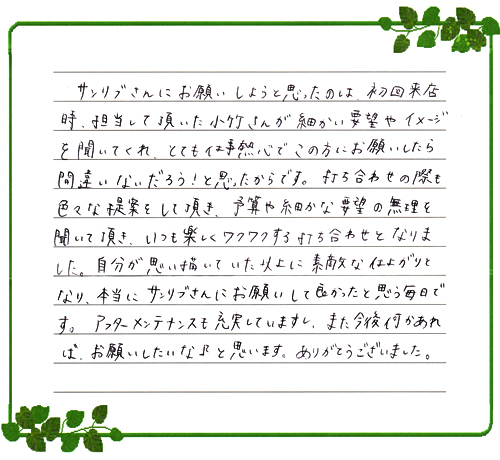 サンリブさんにお願いしようと思ったのは、初回来店
時、担当して頂いた小竹さんが細かい要望やイメージ
を聞いてくれ、とても仕事熱心でこの方にお願いしたら
間違いないだろう！と思ったからです。打ち合わせの際も
色々な提案をして頂き、予算や細かな要望の無理を
聞いて頂き、いつも楽しくワクワクする打ち合わせとなりま
した。自分が思い描いていた以上に素敵な仕上がりと
なり、本当にサンリブさんにお願いして良かったと思う毎日で
す。アフターメンテナンスも充実していますし、また今後何かあれ
ば、お願いしたいな♪と思います。ありがとうございました。